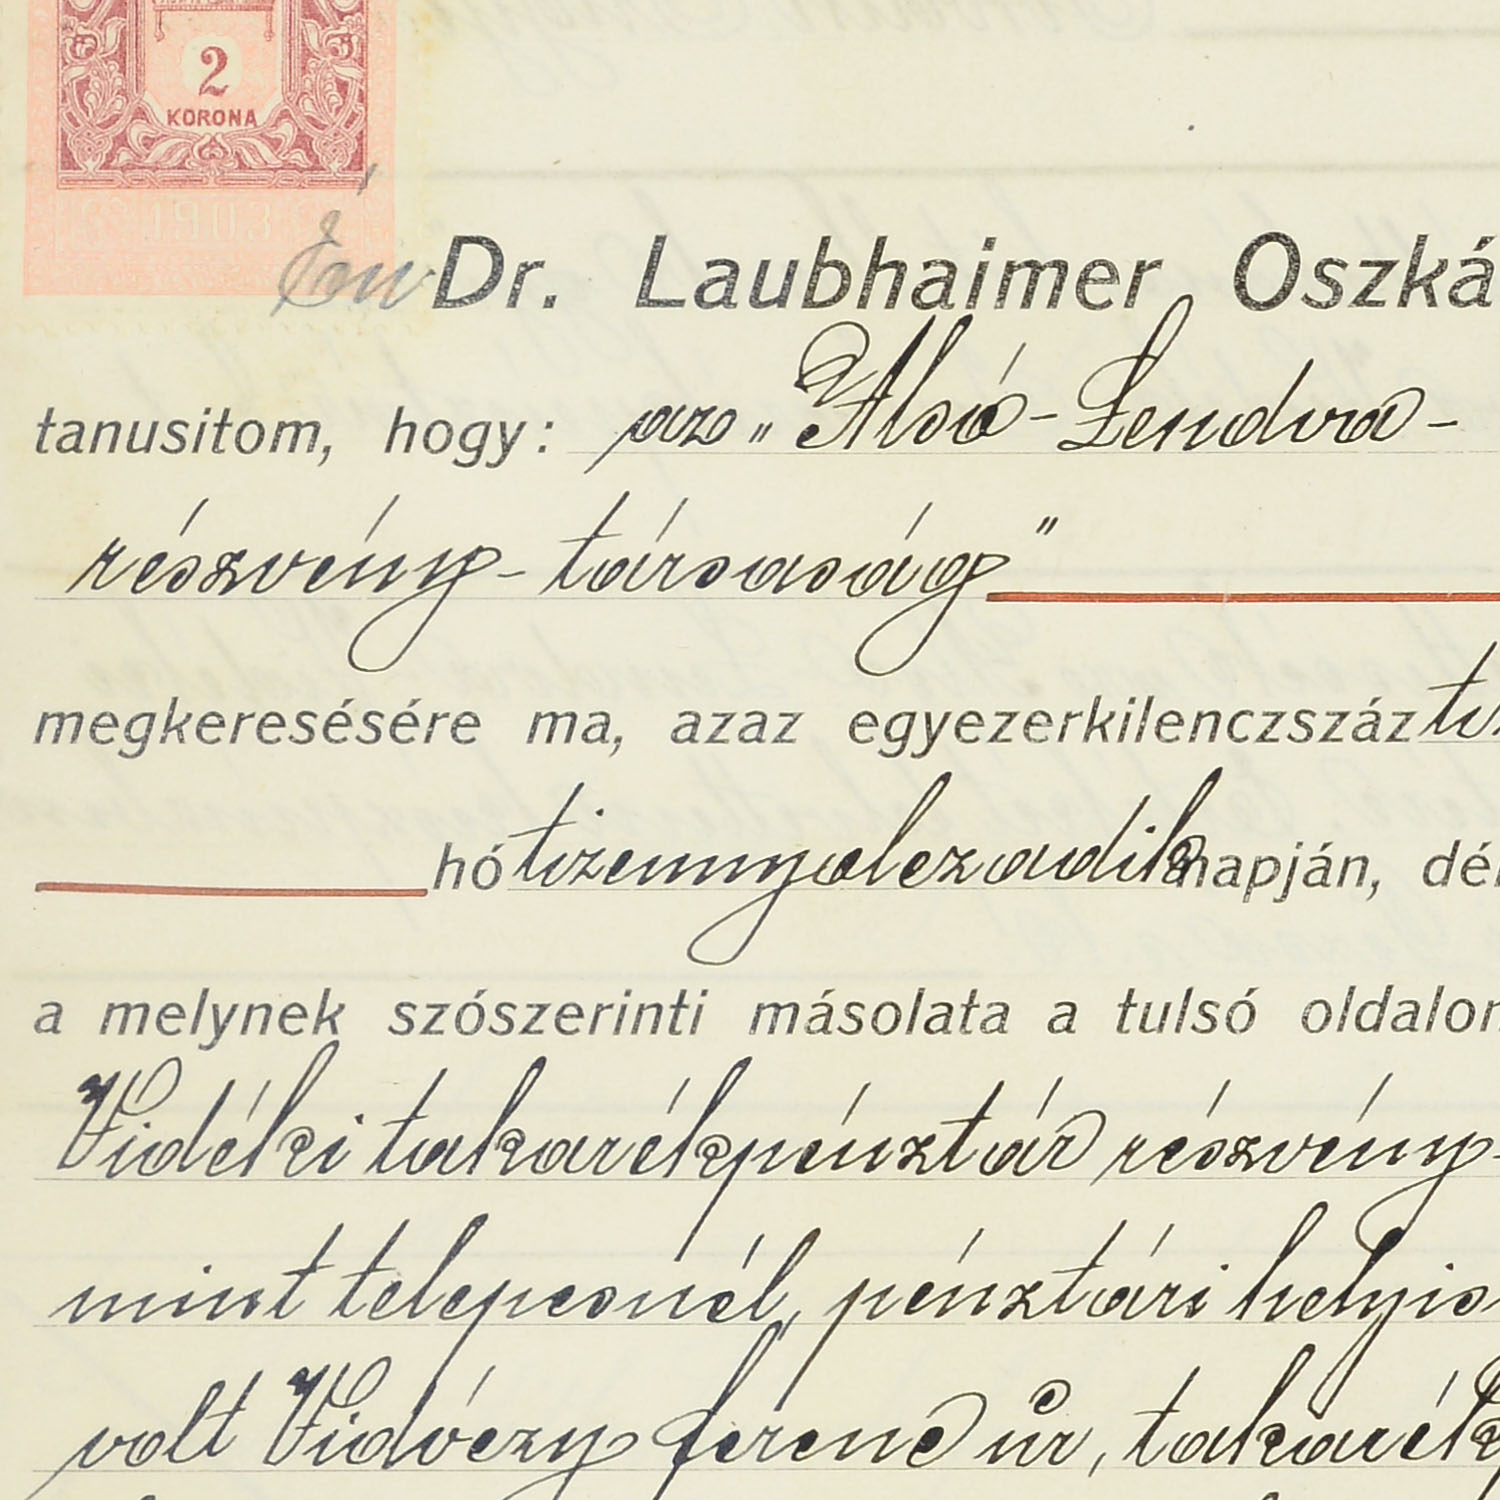 2
KORONA
1903
Én Dr. Laubhaimer Oszká
tanusitom, hogy: az „Alsó-Lendva-
részvény-társaság"
megkeresésére ma, azaz egyezerkilenczszáz
hó tizennyolczadik napján, dél
a melynek szószerinti másolata a tulsó oldalon
Vidéki takarékpénztár részvény-
mint telepesnél, pénztári helyis
volt Vidóczy ferenc úr, takarék